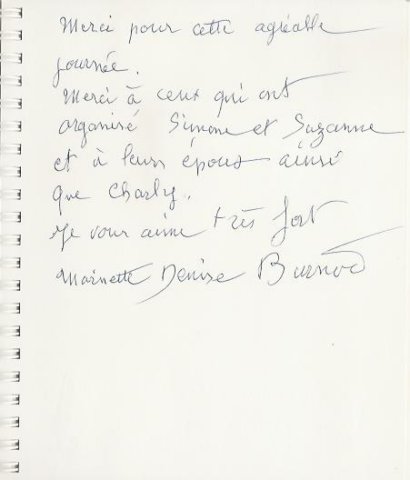 Merci pour cette agréable
journée.
Merci à ceux qui ont
organisé Simone et Suzanne
et à leurs époux ainsi
que Charly.
Je vous aime très fort
Denise